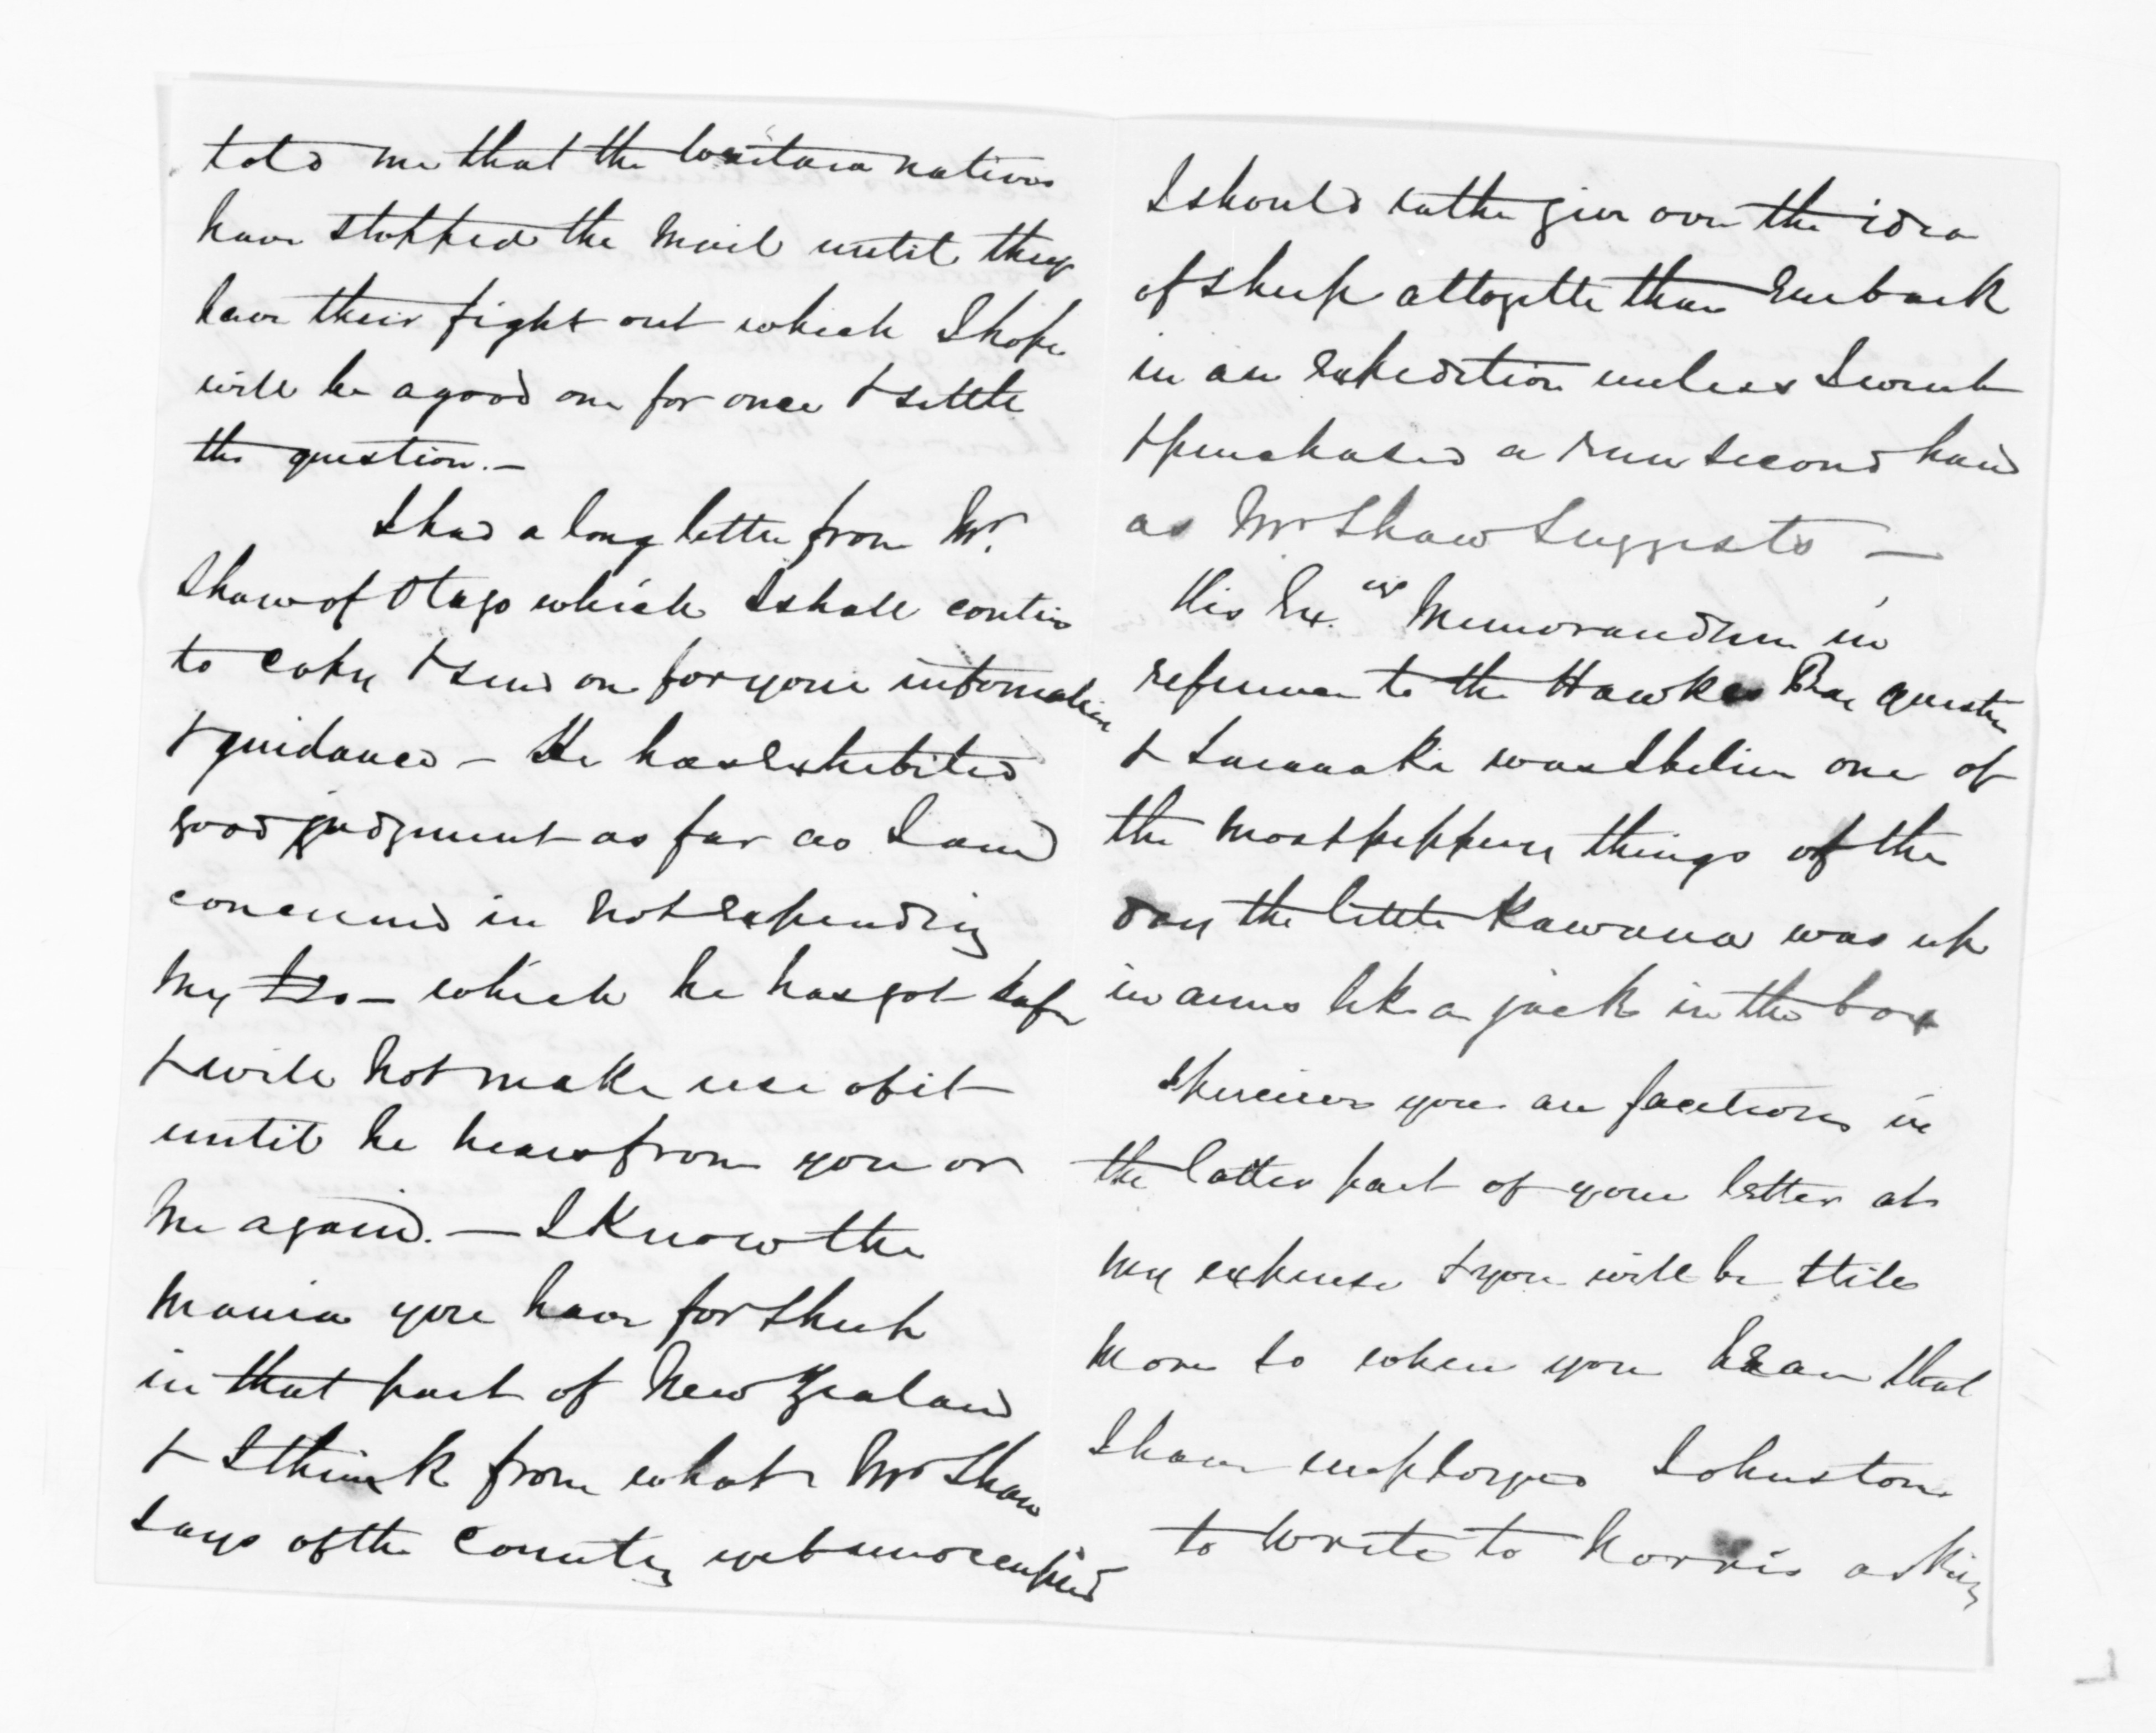 told me that the Waitara natives
have stopped the mail until they
have their fight out which I hope
will be a good one for once & settle
the question. —
I had a long letter from Mr.
Shaw of Otago which I shall
to copy & send on for your information
& guidance — He has exhibited
good judgment as far as I am
concerned in not expending
my which he has got safe
& will not make use of it
until he hears from you or
me again. — I know the
mania you have for sheep
in that part of New Zealand
& I think from what Mr Shaw
says of the country yet unoccupied
I should rather give over the idea
of sheep altogether than Embark
in an Expedition unless I went
& purchased a run second hand
as Mr Shaw Suggests —
His Ex.cys Memorandum in
reference to the Hawkes Bay question
& Taranaki was I believe one of
the most peppery things of the
day the little Kawana was up
in arms like a jack in the box
I perceive you are facetious in
the latter part of your letter at
my expense & you will be still
more so when you hear that
I have employed Johnston
to write to Norris asking